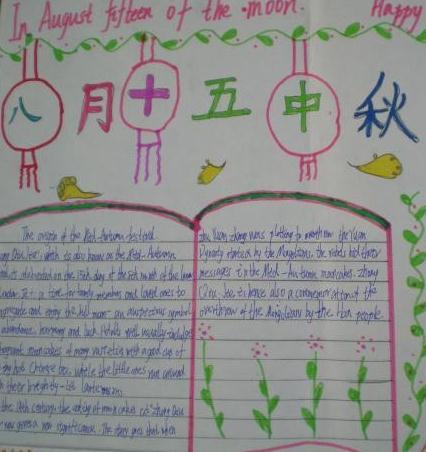 In August fifteen of the moon. Happy
八月十五中秋
The origin of the Mid-Autumn festival
which is also known as the Mid-Autumn
celebrated on the 15th day of the 8th month of the
time for family members and loved ones to
and enjoy the full moon - an auspicious symbol
abundance, harmony and luck. Adults will usually
mooncakes of many varieties with a good cup of
hot Chinese tea, while the little ones run around
their brightly-lit lanterns.
the 14th century, the eating of mooncakes
new significance. The story goes that when
Yuan zhang was plotting to overthrow the Yuan
Dynasty started by the Mongolians, the rebels hid their
messages in the Mid-Autumn mooncakes. Zhong
Qiu Jie is hence also a commemoration of the
overthrow of the Mongolians by the Han people.